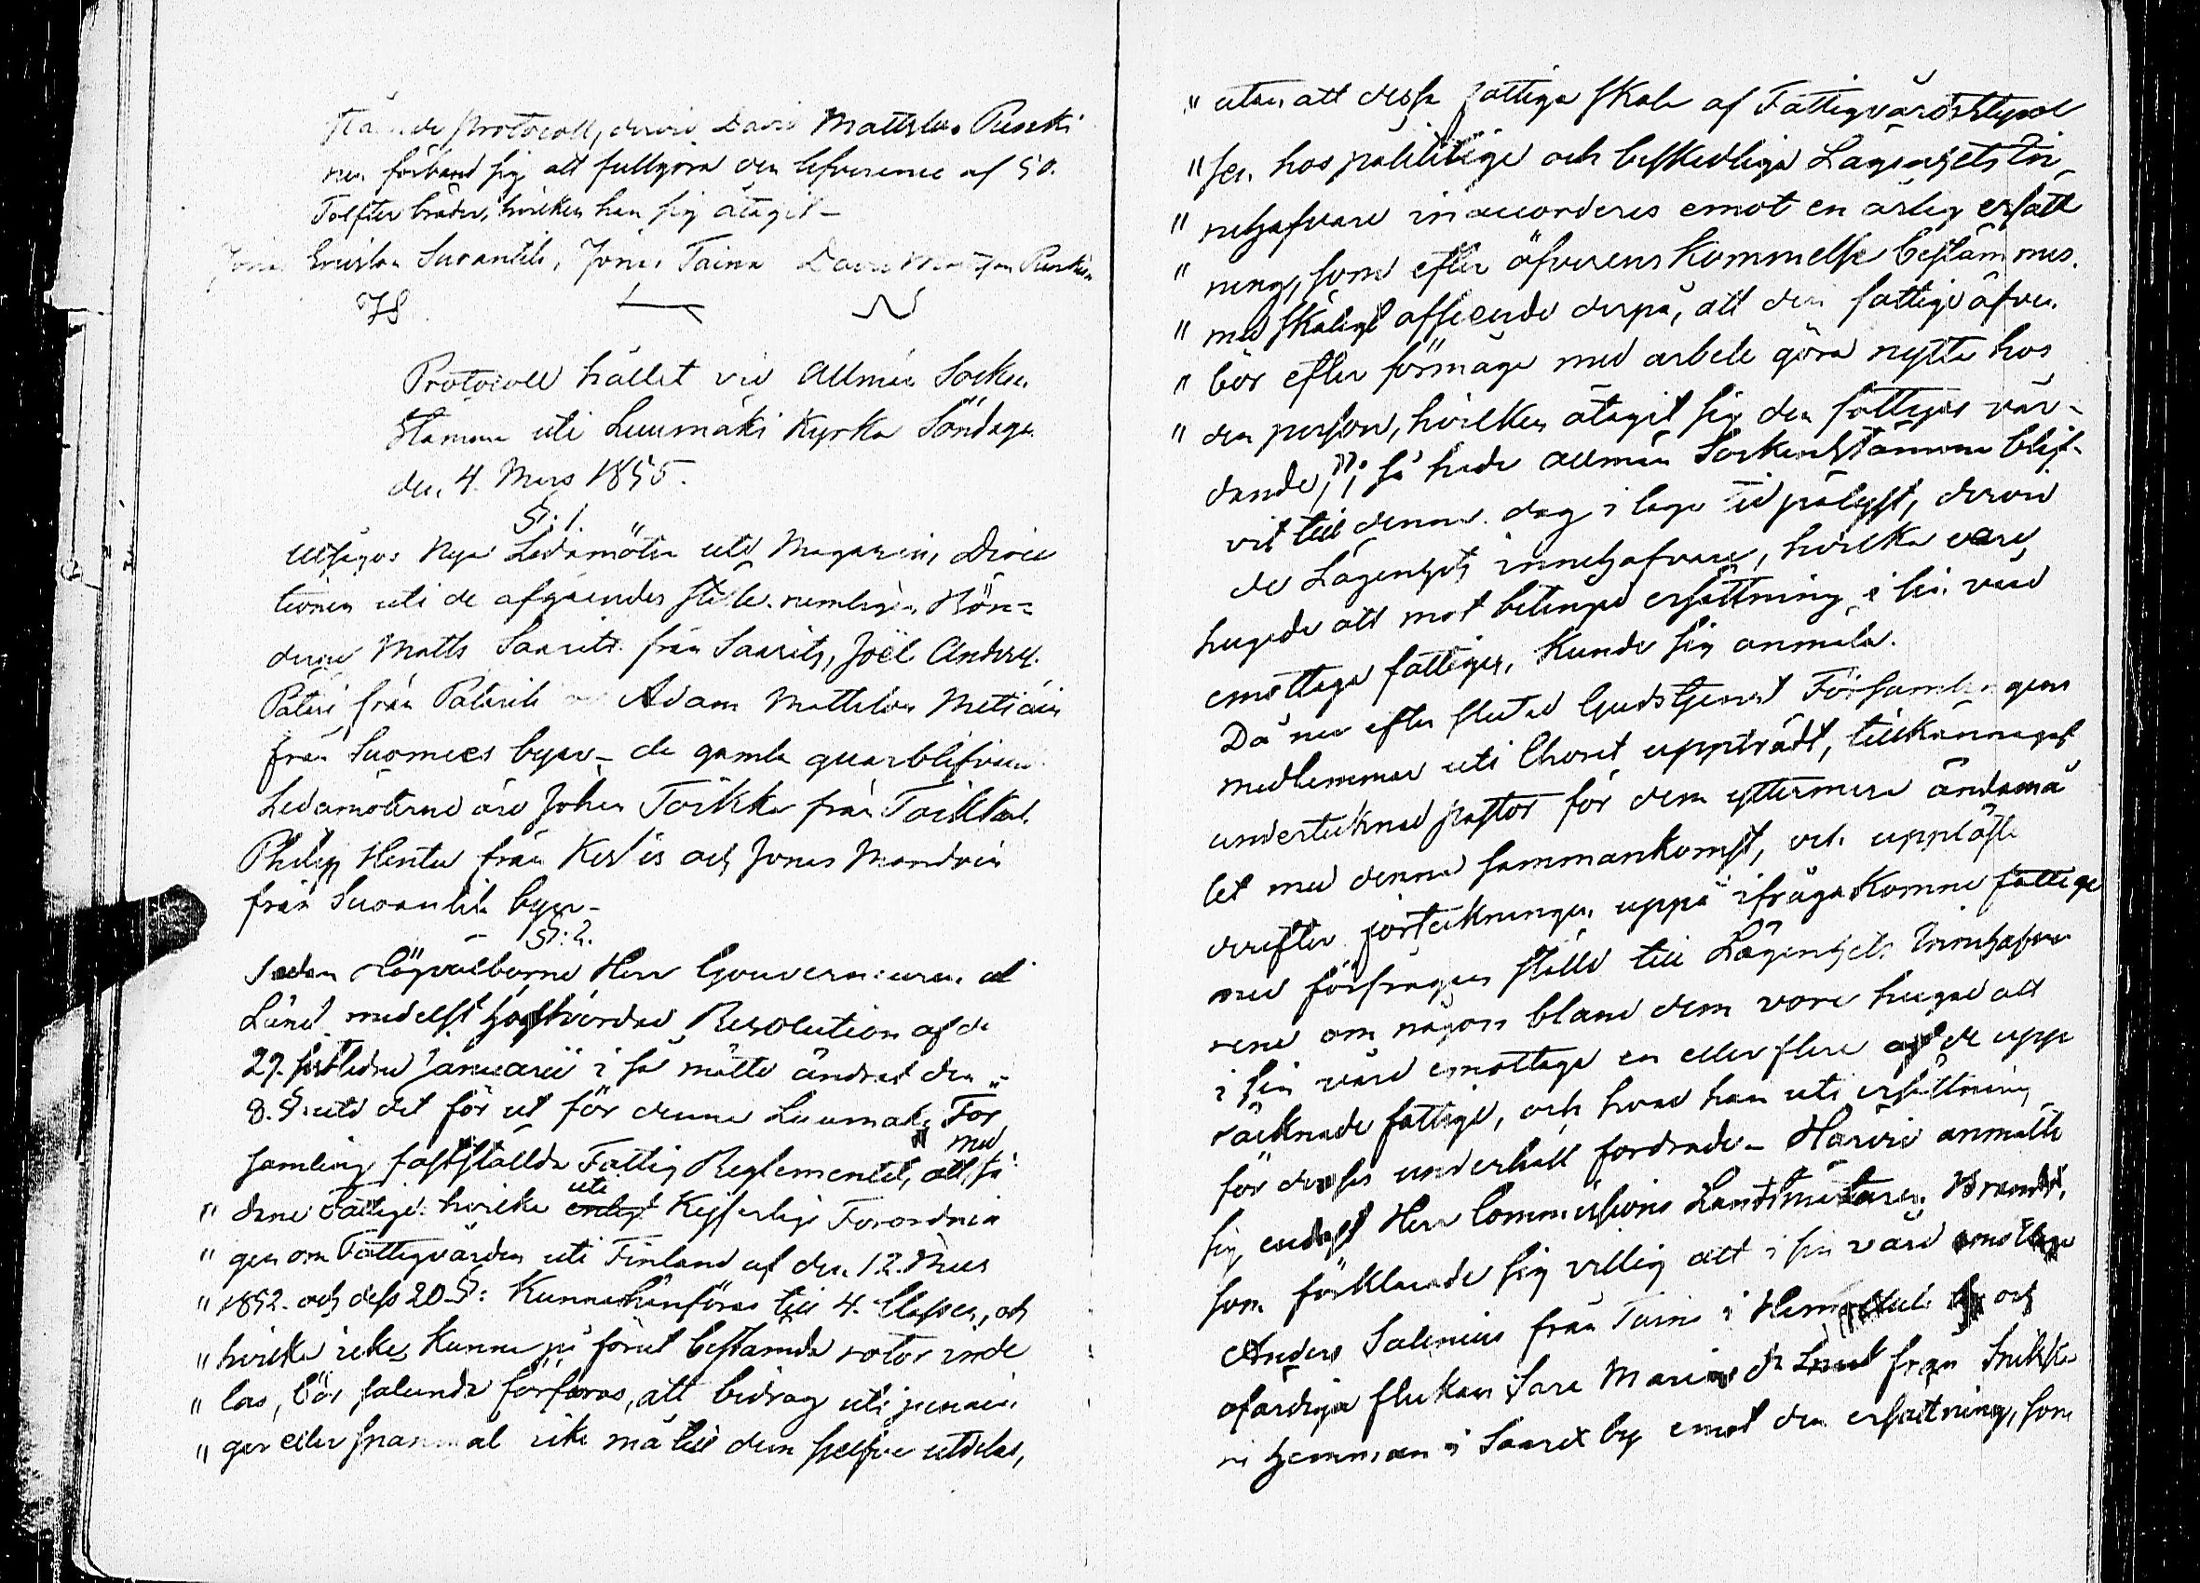 stående Protocoll, dervid David Mattsson Ruski
nen förband sig att fullgöra den lefverence af 50.
Tolfter bräder, hvilken han sig åtagit –
Jonas Ericsson Suoantila, Jonas Taina David Mattsson Ruskin
Protocoll hållet vid Allmän Socken
Stamma uti Luumäki Kyrka Söndagen
den 4. Mars 1855.
§: 1.
Utsågos Nya Ledamöter uti Magazins Direc
tionen uti de afgåendes ställe nemligen Bön=
derne Matts Saarits från Saarits, Joël Anderss.
Pätäri från Pätärilä Adam Mattsson Metiäin
från Suomies byar – de gamla quarblifvand
Ledamöterne äro Johan Toikka från Toikkal.
Philip Hentu från Kes is och Jonas Mandoin
från Suoantila byar –
§: 2.
Sedan Högvälborne Herr Gouverneuren i
Länet medelst högtvördad Resolution af de
29. sistledne Januarii i så måtto ändrat den
8. §: uti det för ut för denna Luumäki För
samling fastställda Fattig Reglementet, att så
med
" dane Fattige hvilka enligt Kejserliga Förordnin
uti
" gen om Fattigvården uti Finland af den 12. Mars
" 1852. och dess 20. §: Kunna hänföras till 4. Classen, och
" hvilka icke Kunna på förut bestämda rotor inde
" las, bör sålunda förfaras, att bidrag uti pennin
" gar eller spanmål icke må till dem sjelfve utdelas,
" utan att dessa fattiga skola af Fattigvårdsstyrel
" sen hos pålitlige och beskedliga Lägenhets In
" nehafvare inaccorderas emot en årlig ersätt
" ning, som efter öfverens Kommelse bestämmes.
" med skäligt afseende derpå, att den fattige äfven
" bör efter förmåga med arbete göra nytta hos
" den person, hvilken åtagit sig den fattiges vår-
dande,"; så hade Allmän Sockenstämma blif-
vit till denna dag i laga tid pålyst, dervid
de Lägenhets innehafvare, hvilka vore
hugade att mot betingad ersättning i sin vård
emottaga fattiga, Kunde sig anmäla.
Då nu efter slutad Gudstjenst Församlingens
medlemmar uti Choret uppträdt, tillkännagaf
undertecknad pastor för dem yttermera ändamå
let med denna sammankomst, och uppläste
derefter förteckningen uppå ifråga Komne fattige
med förfrågan ställd till Lägenhets Innehafva
rene om någon bland dem vore hugad att
i sin vård emottaga en eller flere af de upp
räknade fattige, och hvad han uti ersättning
för dess underhåll fordrade – Härvid anmälte
sig endast Herr Commissions Landtmätaren Brandt,
som förklarade sig villig att i sin vård emottaga
Anders Salenius från Taina i Hem by och
ofärdiga flickan Sara Maria dr från Sukki
ni hemman i Saarix by emot den ersättning, som